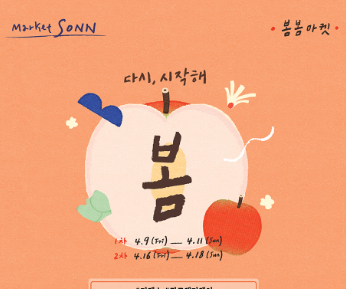 Market SONN
봄봄마켓
다시, 시작해
봄
1차 4.9 (Fri) — 4.11 (Sun)
2차 4.16 (Fri) — 4.18 (Sun)